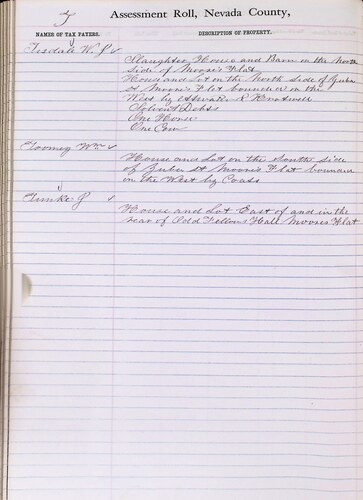 T
Assessment Roll, Nevada County,
NAMES OF TAX PAYERS.
DESCRIPTION OF PROPERTY.
Tisdale W. P
Slaughter House and Barn on the North
Side of Moore's Flat
House and Lot on the North side of Yuba
St Moore's Flat bounded on the
West by
Solvent Debts
One Horse
One Cow
Toomey Wm
House and Lot on the South side
of Yuba St Moore's Flat bounded
on the West by Coass
J
House and Lot East of and in the
rear of Odd Fellows Hall Moores Flat